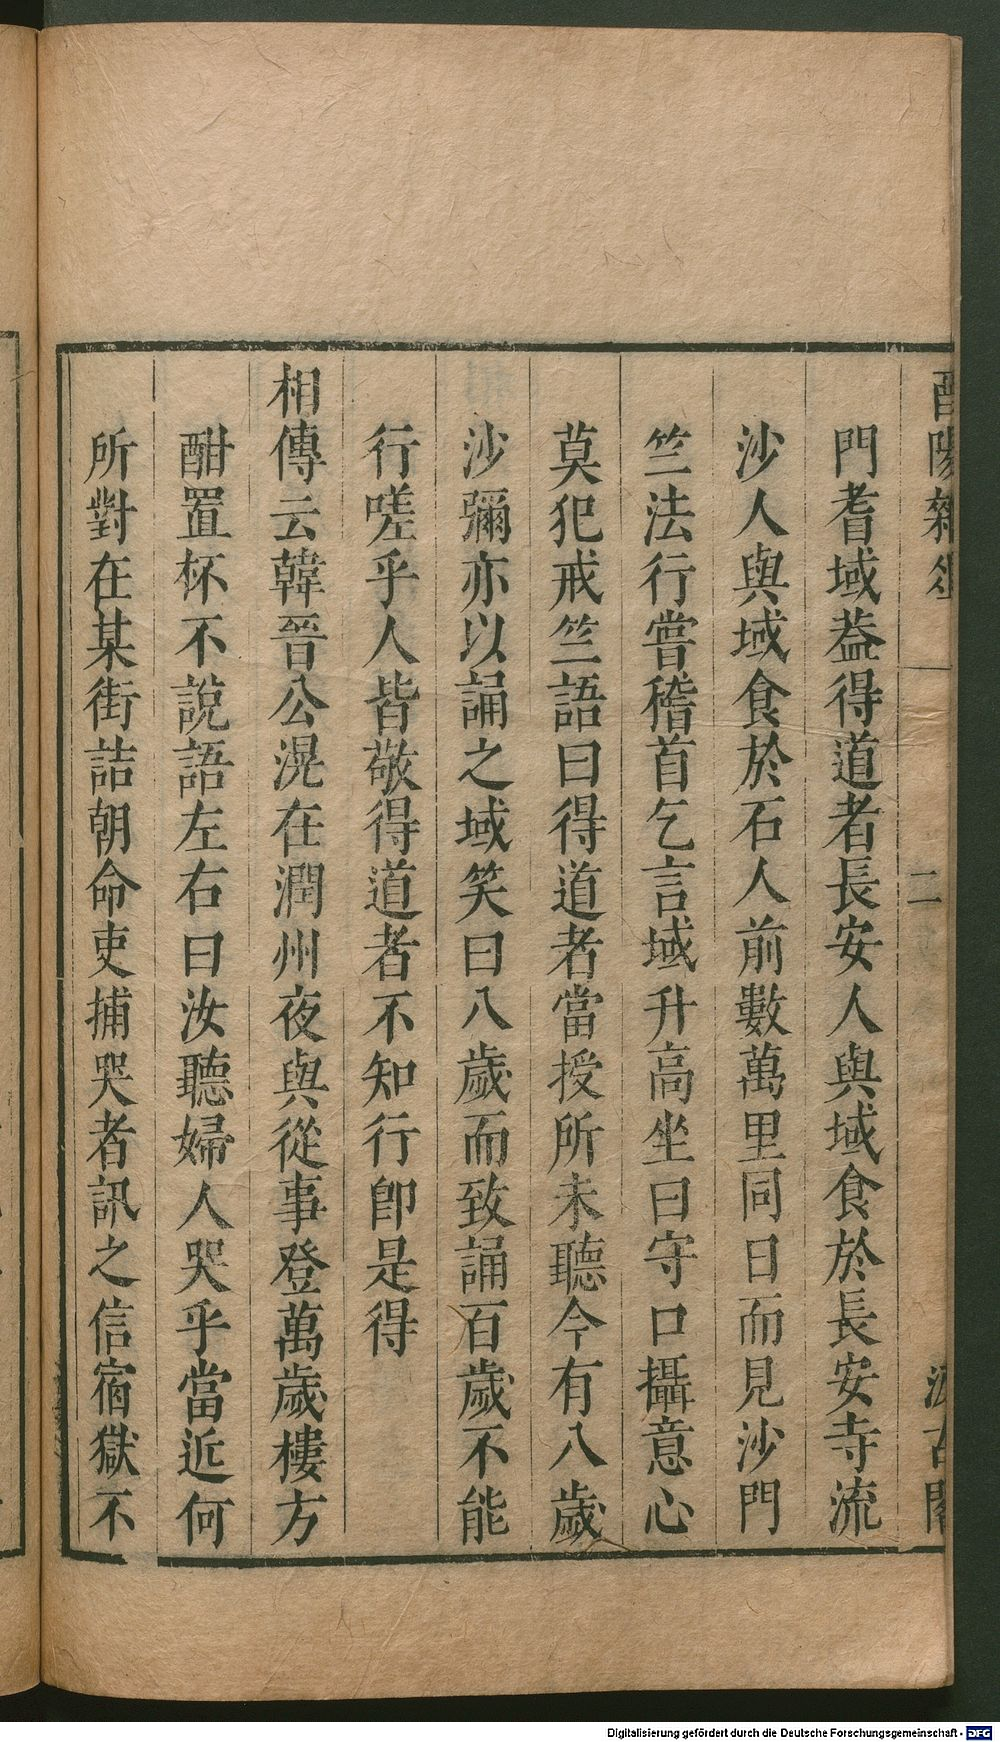 酉陽雜俎 二 汲古閣
門耆域葢得道者長安人與域食於長安寺流
沙人與域食於石人前數萬里同日而見沙門
竺法行嘗稽首乞言域升高坐曰守口攝意心
莫犯戒竺語曰得道者當授所未聽今有八歲
沙彌亦以誦之域笑曰八歲而致誦百歲不能
行嗟乎人皆敬得道者不知行卽是得
相傳云韓晉公滉在潤州夜與從事登萬歲樓方
酣置杯不說語左右曰汝聽婦人哭乎當近何
所對在某街詰朝命吏捕哭者訊之信宿獄不
Digitalisierung gefördert durch die Deutsche Forschungsgemeinschaft - DFG